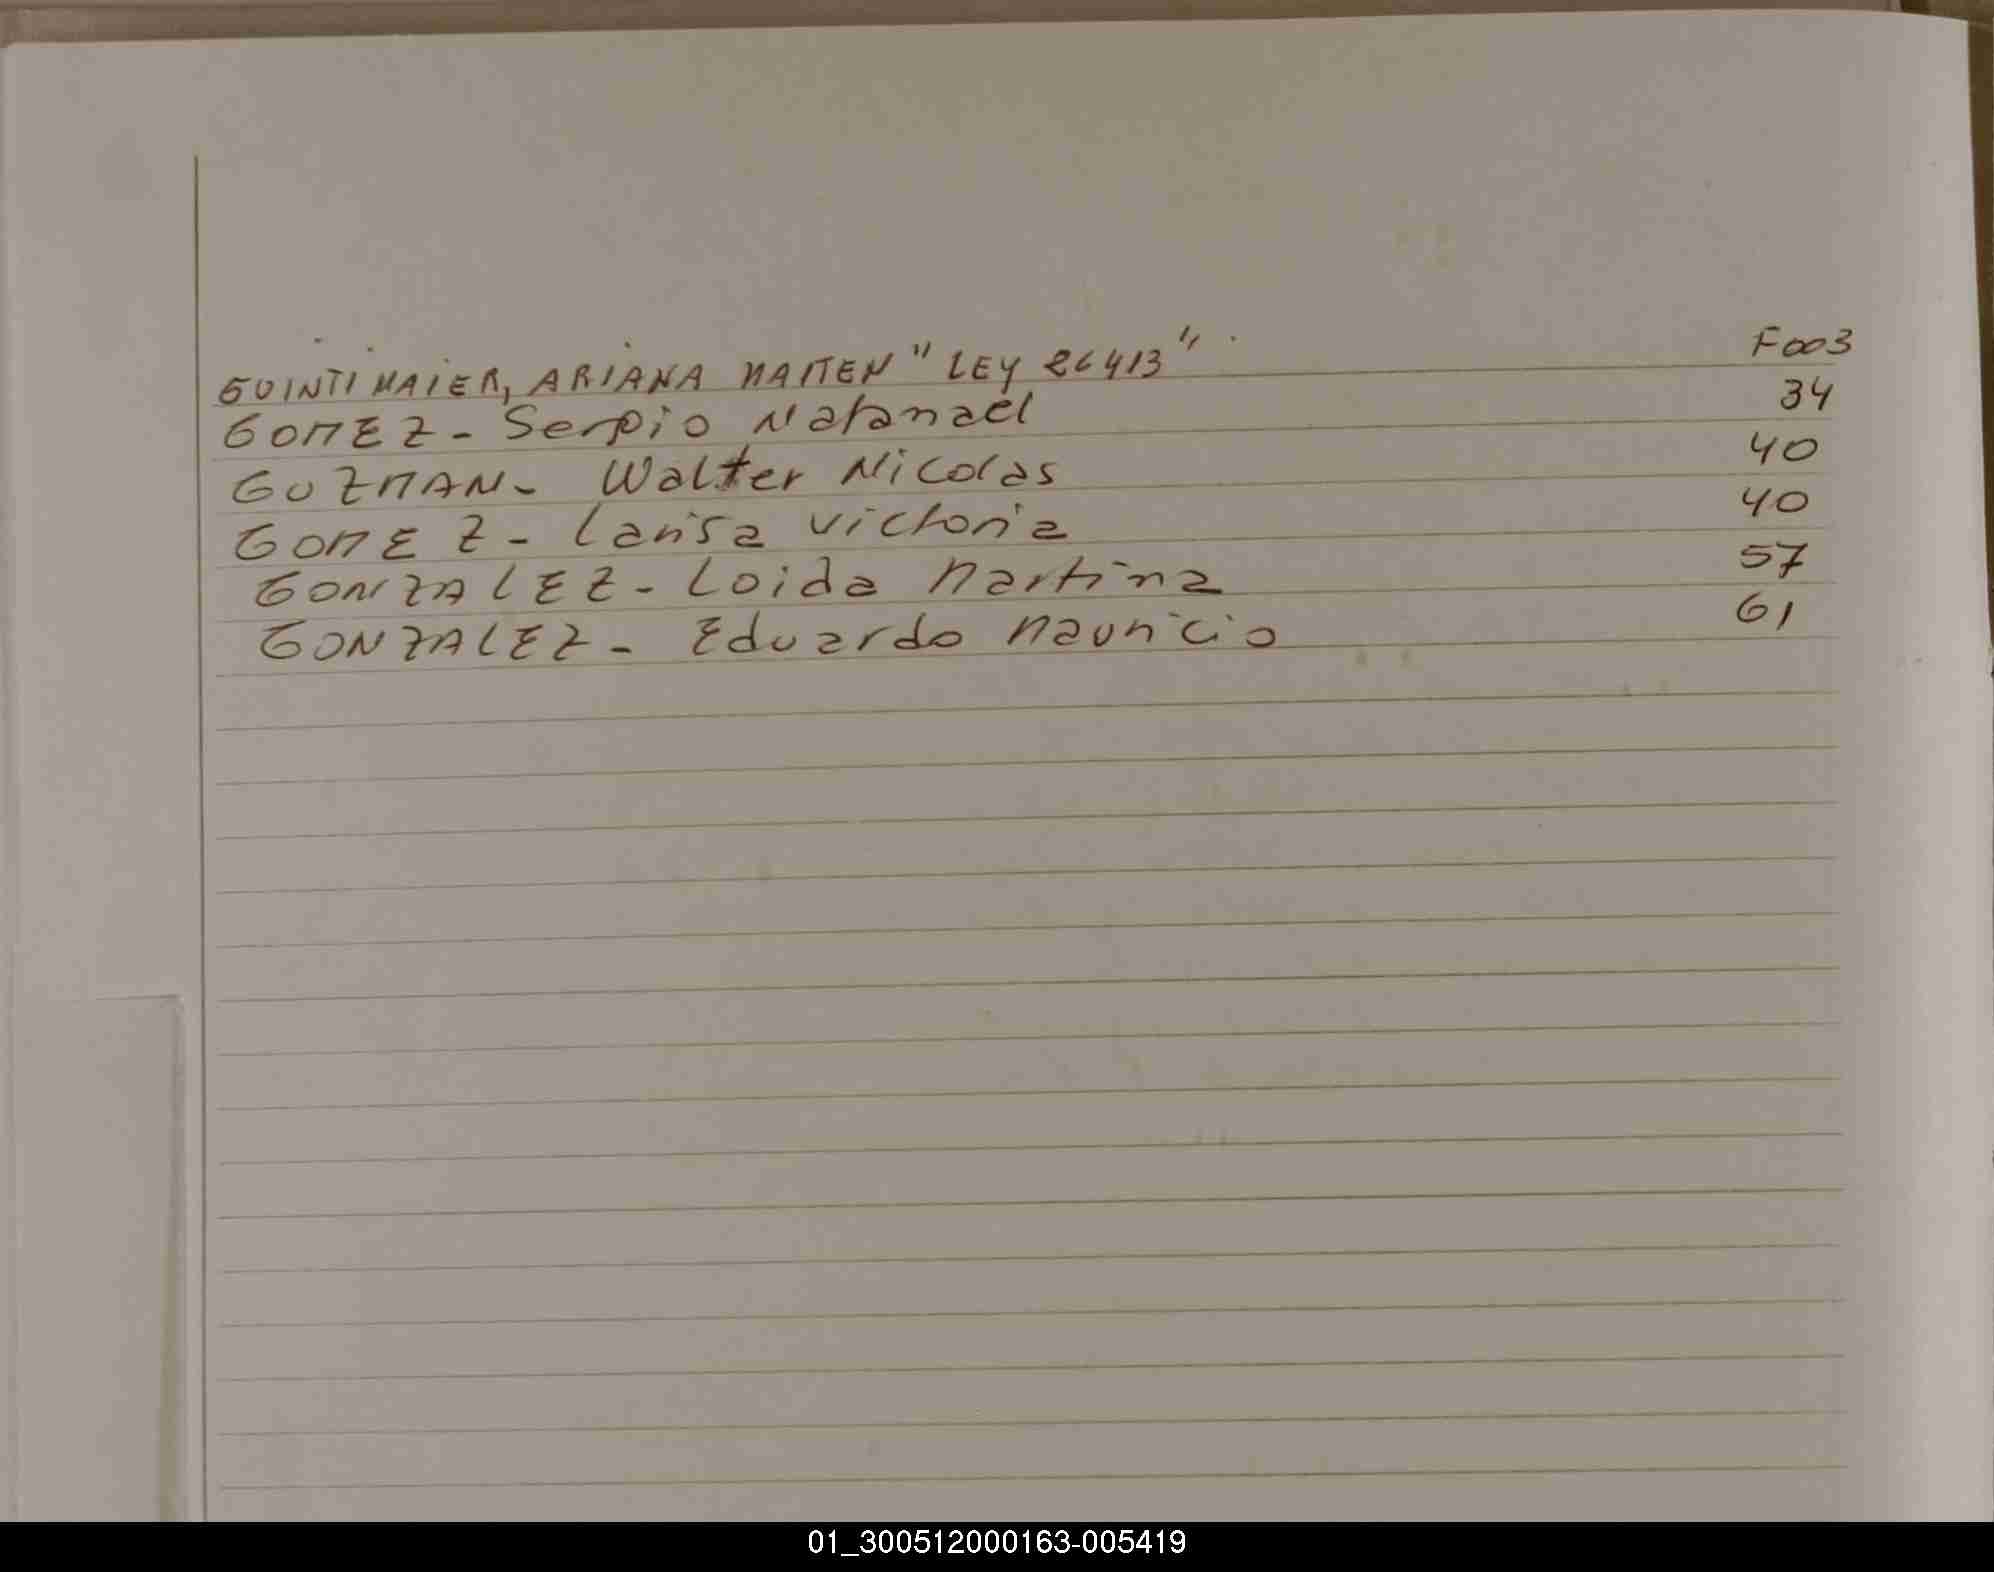 GUINTI MAIER, ARIANA MAITEN "LEY 26413" F003
GOMEZ - Sergio Natanael 34
GUZMAN - Walter Nicolas 40
GOMEZ - Larisa Victoria 40
GONZALEZ - Loida Martina 57
GONZALEZ - Eduardo Mauricio 61
01_300512000163-005419